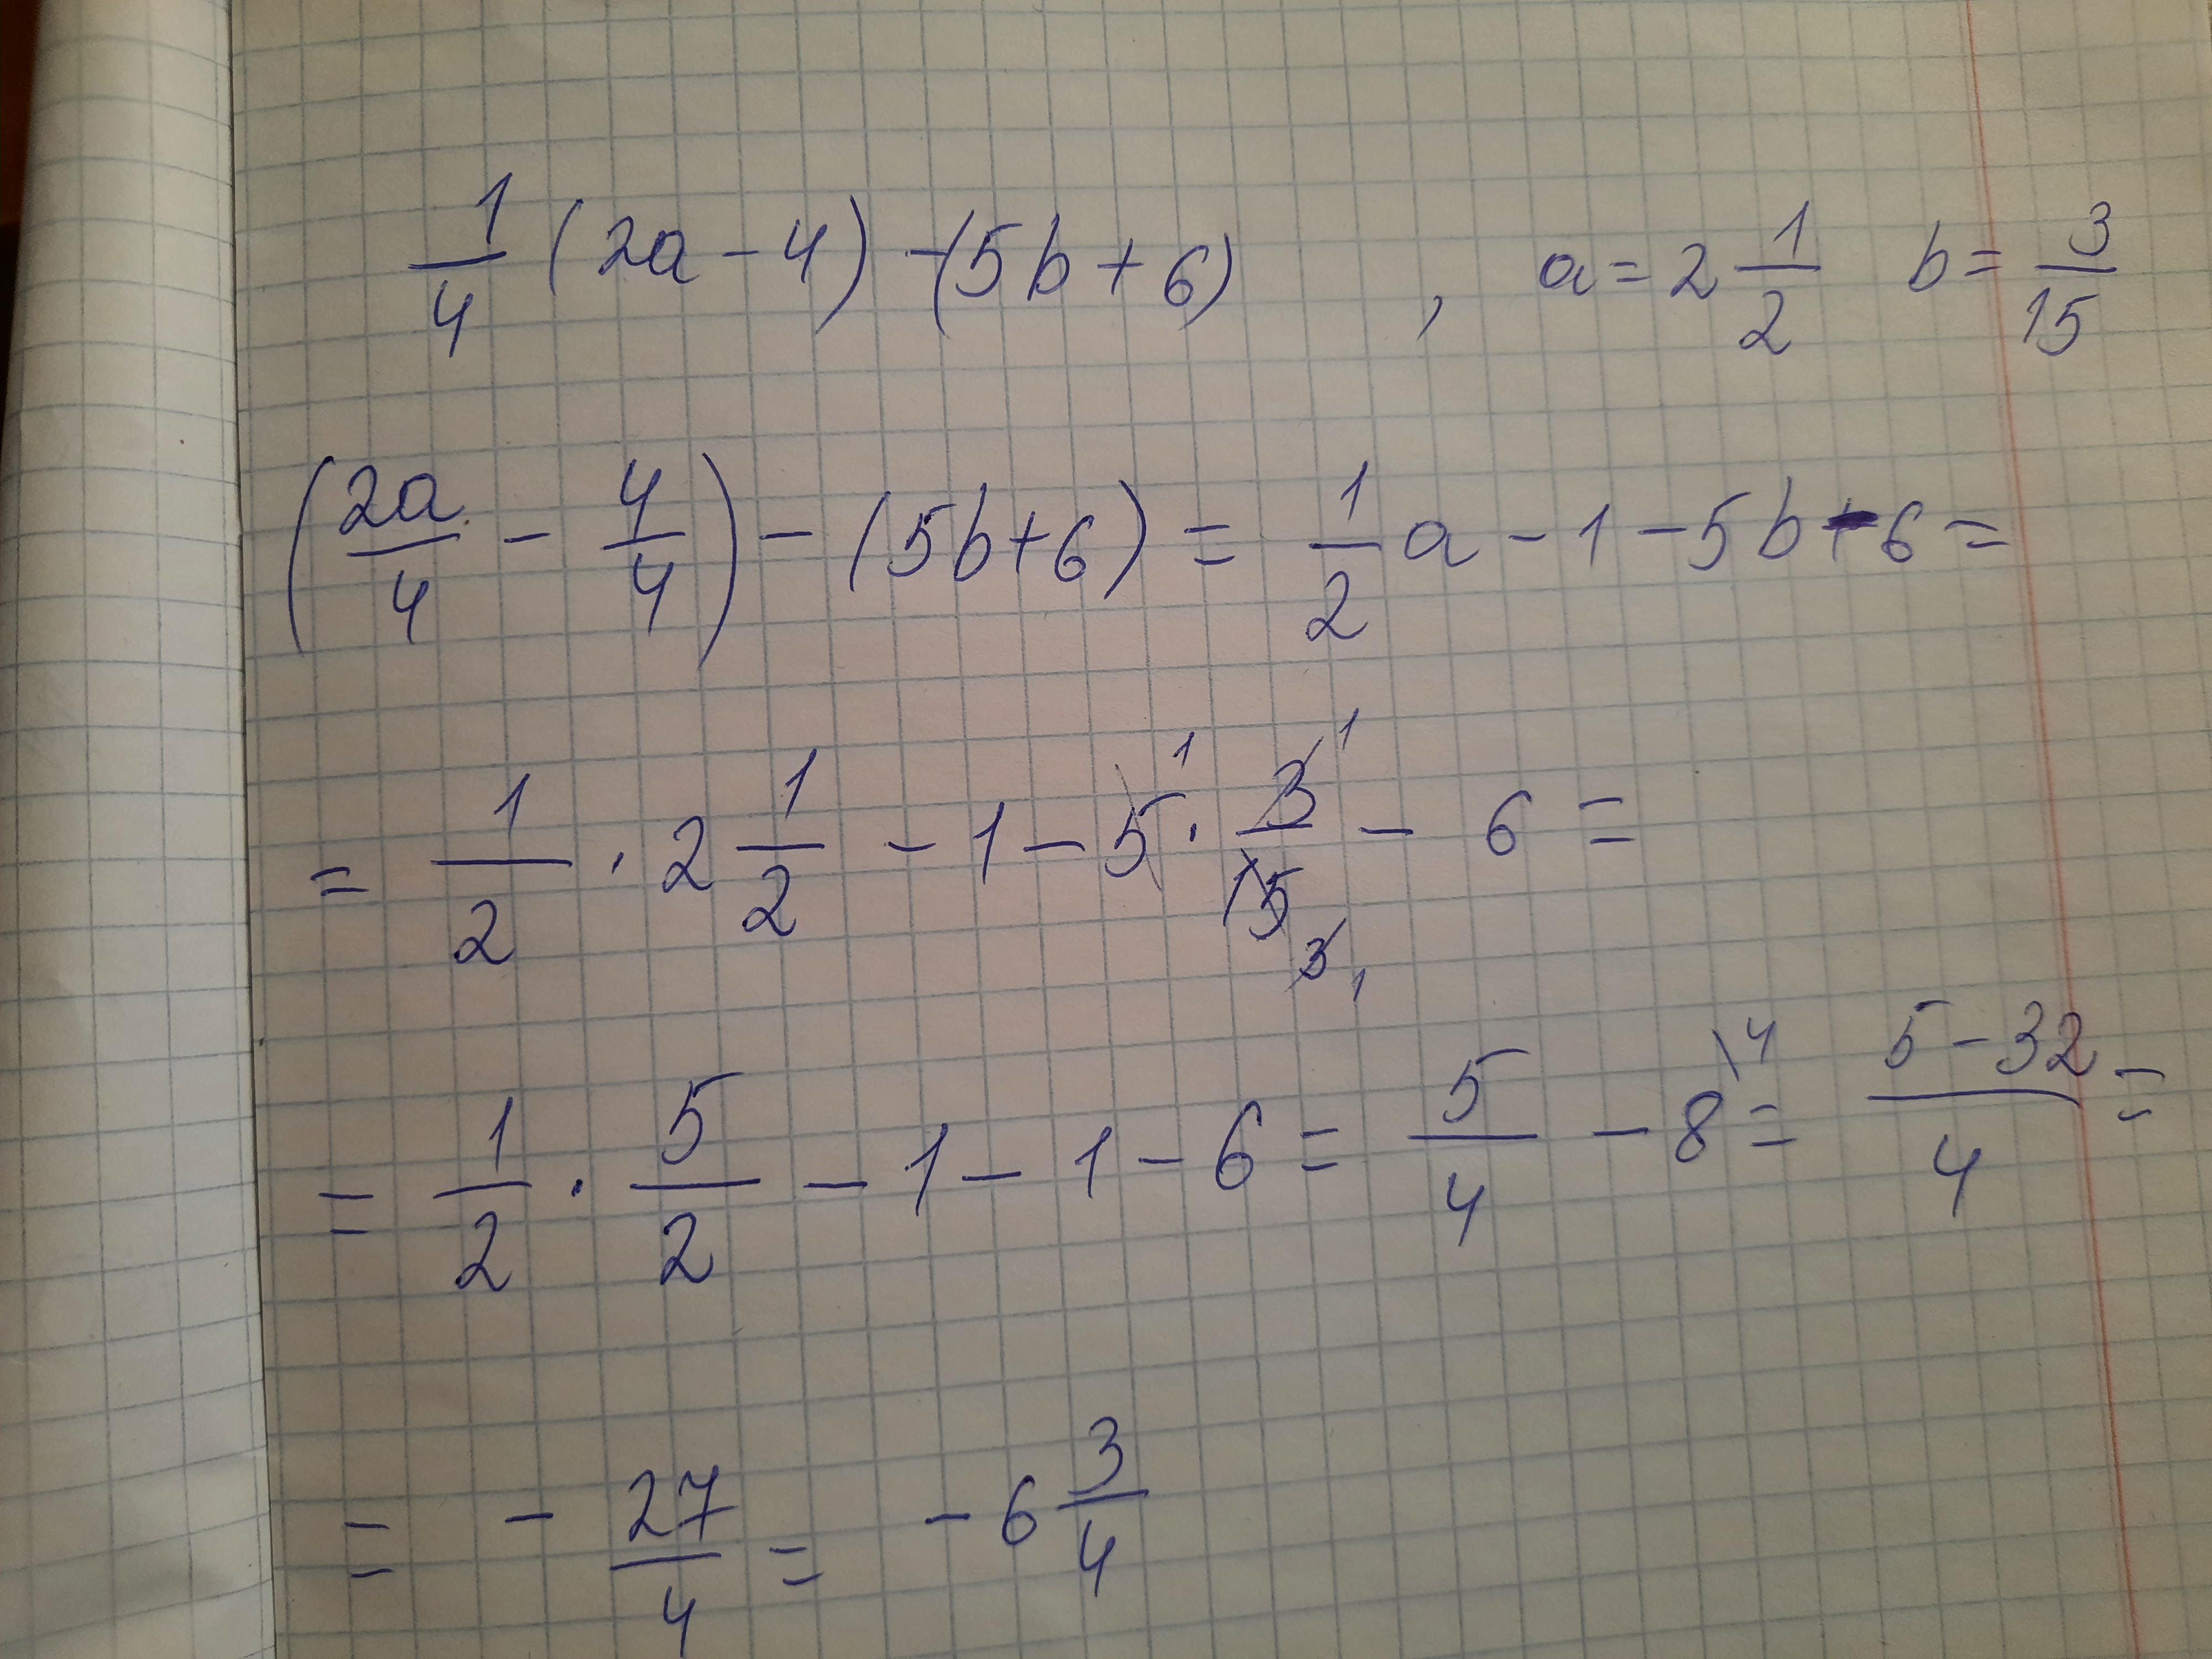 1/4 (2a - 4) - (5b + 6) , a = 2 1/2 b = 3/15
(2a/4 - 4/4) - (5b + 6) = 1/2 a - 1 - 5b - 6 =
= 1/2 · 2 1/2 - 1 - 5 1 · 3 1/15 3 1 - 6 =
= 1/2 · 5/2 - 1 - 1 - 6 = 5/4 - 8 \4 = 5 - 32/4 =
= - 27/4 = - 6 3/4